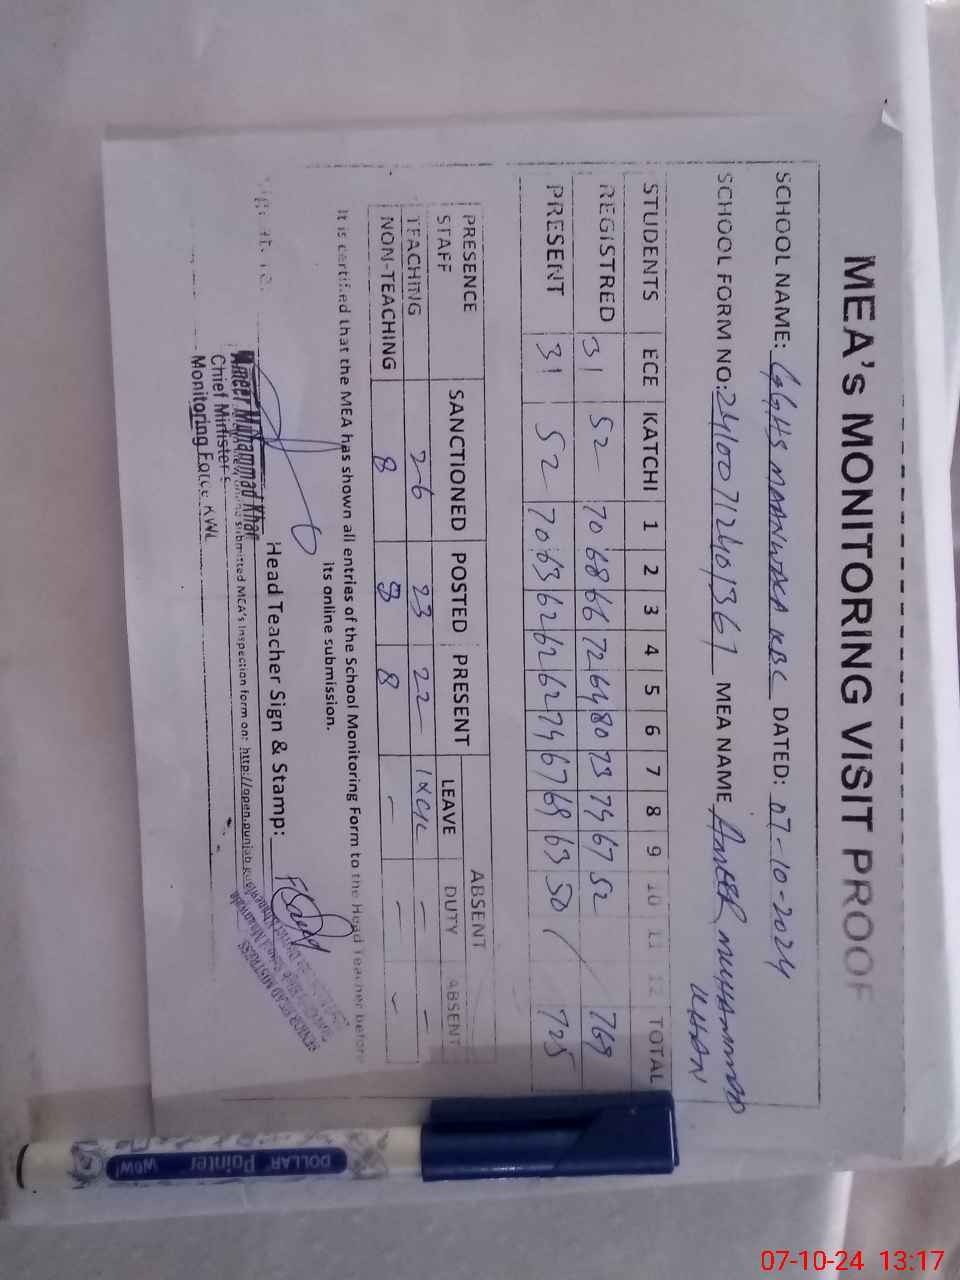 MEA's MONITORING VISIT PROOF
SCHOOL NAME: GGHS MAANWALA KBC DATED: 07-10-2024
SCHOOL FORM NO: MEA NAME AMEER MUHAMMAD KHAN
STUDENTS ECE KATCHI 1 2 3 4 5 6 7 8 9 10 11 12 TOTAL
REGISTRED 31 52 70 68 66 72 64 80 73 74 67 52 769
PRESENT 31 52 70 63 62 62 62 74 67 69 63 50 725
PRESENCE SANCTIONED POSTED PRESENT ABSENT
STAFF LEAVE DUTY ABSENT
TEACHING 26 23 22 - -
NON-TEACHING 8 8 8 - - -
It is certified that the MEA has shown all entries of the School Monitoring Form to the Head Teacher before
its online submission.
Head Teacher Sign & Stamp:
Ameer Muhammad Khan
Chief Minister's
Monitoring Force KWL
submitted MEA's inspection form on: http://open.punjab
SENIOR HEAD MISTRESS
DOLLAR Pointer WOW!
07-10-24 13:17